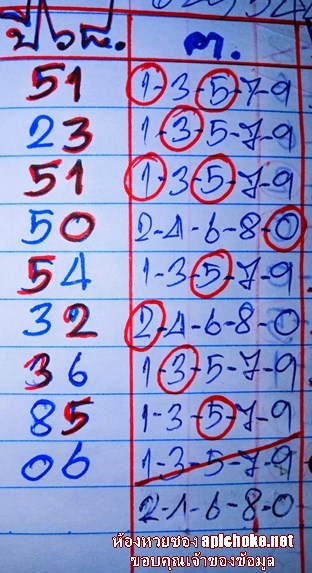 ปี๖๘. ต.
51 1-3-5-7-9
23 1-3-5-7-9
51 1-3-5-7-9
50 2-4-6-8-0
54 1-3-5-7-9
32 2-4-6-8-0
36 1-3-5-7-9
85 1-3-5-7-9
06 1-3-5-7-9
2-4-6-8-0
ห้องหวยซอง apichoke.net
ขอบคุณเจ้าของข้อมูล